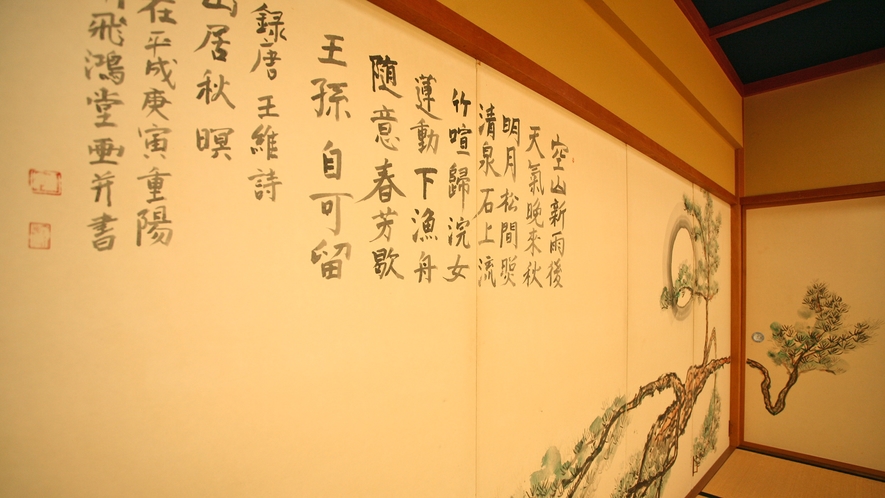 空山新雨後
天氣晚来秋
明月松間照
清泉石上流
竹喧歸浣女
蓮動下漁舟
随意春芳歇
王孫自可留
錄唐王維詩
山居秋暝
在平成庚寅重陽
飛鴻堂画并書